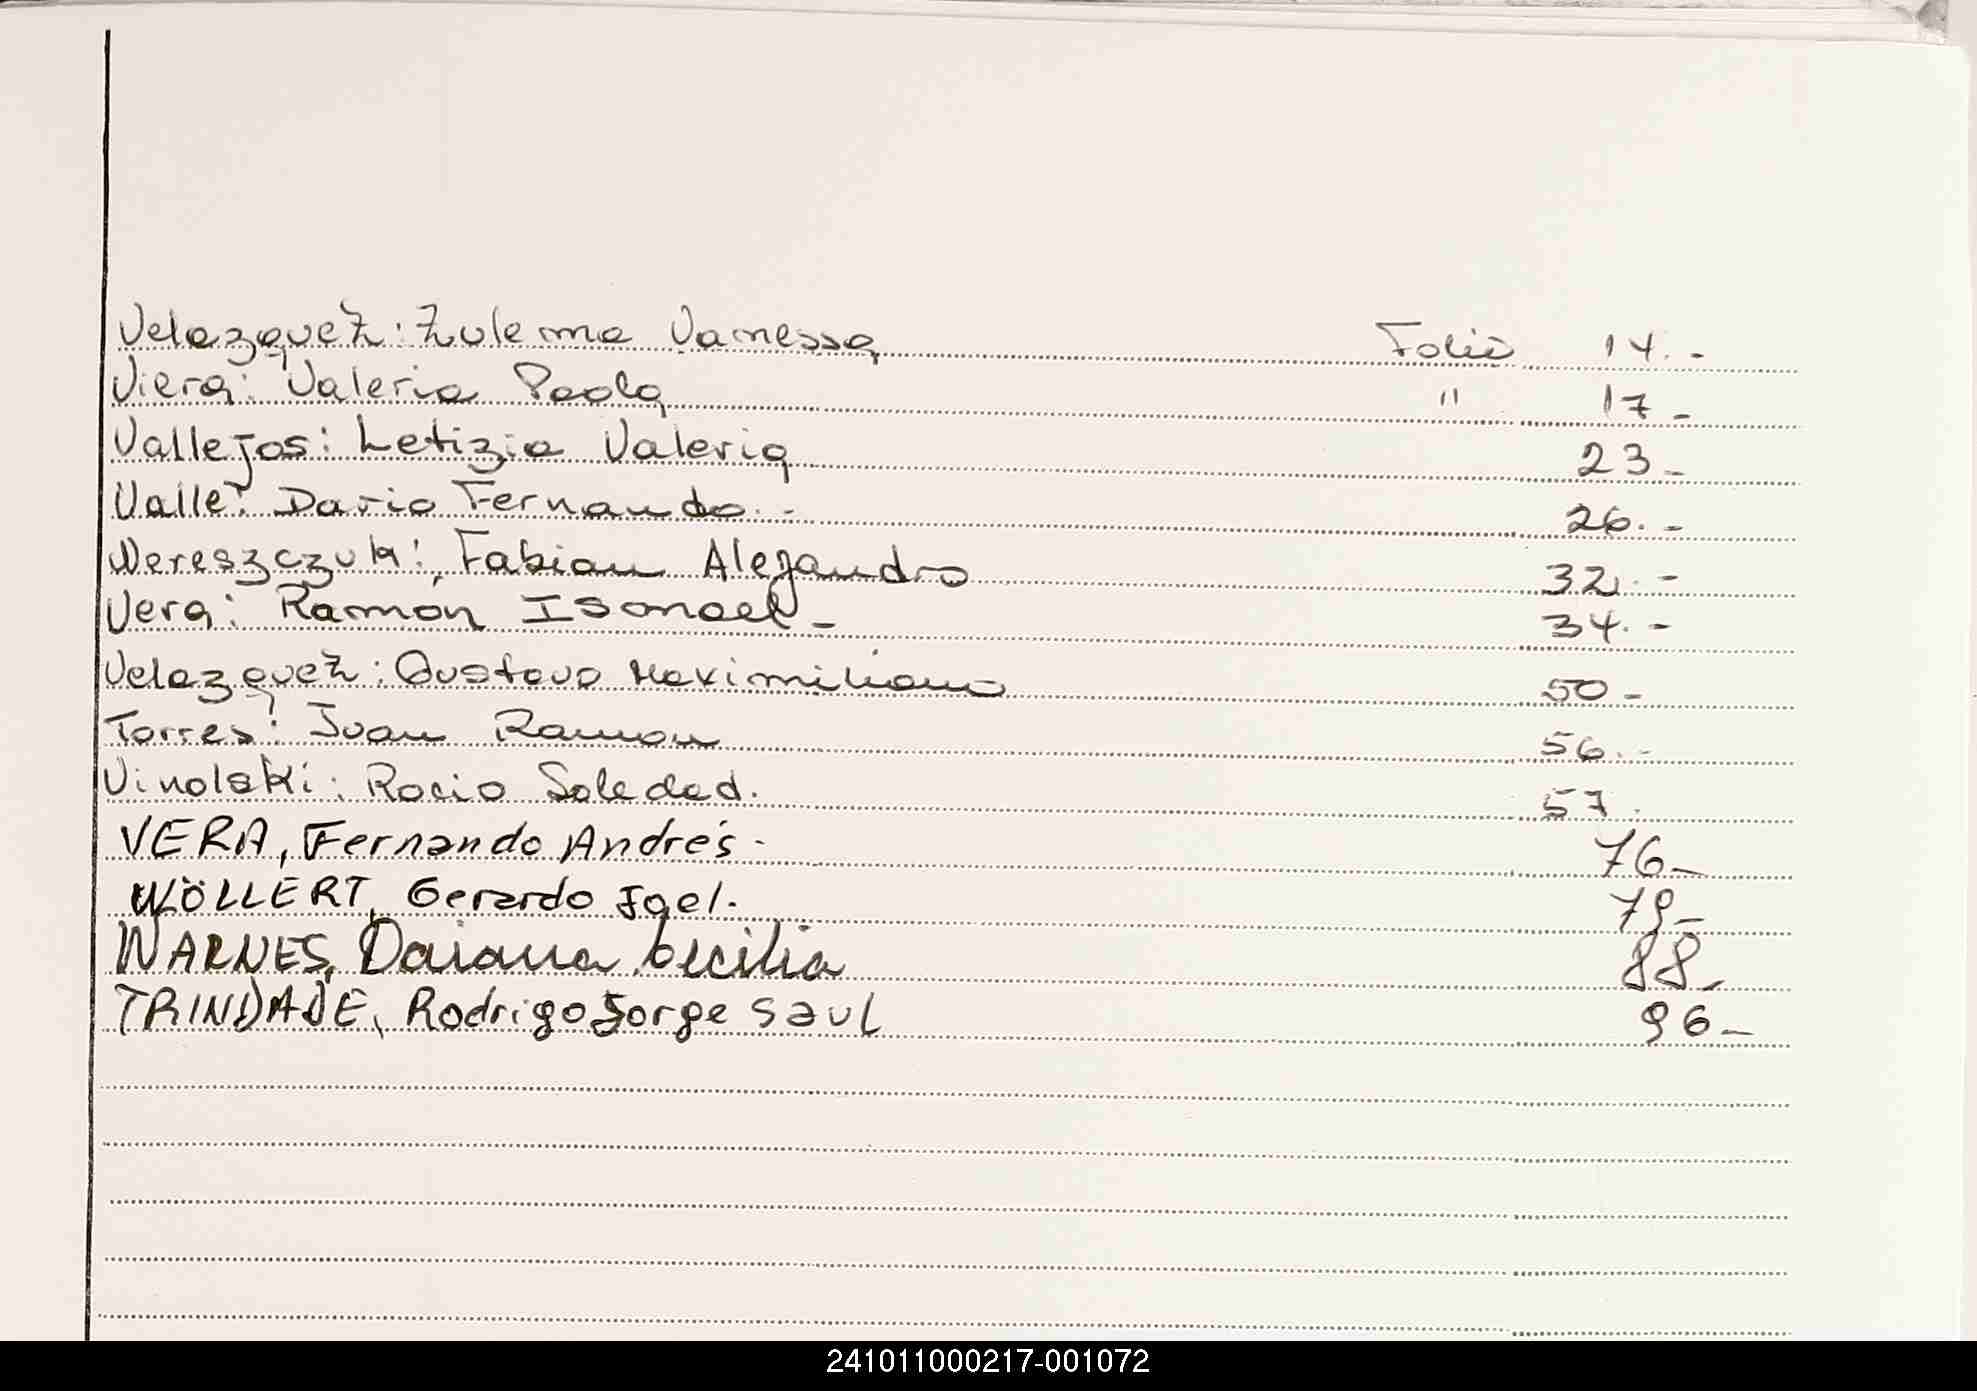 Velazquez: Zulema Vanessa Folio 14.-
Viera: Valeria Paola " 17-
Vallejos: Letizia Valeria 23-
Valle: Dario Fernando.- 26.-
Wereszczuk: Fabian Alejandro 32.-
Vera: Ramón Ismael- 34.-
Velazquez: Gustavo Maximiliano 50-
Torres: Juan Ramon 56.-
Vinolski: Rocio Soledad. 57.
VERA, Fernando Andrés- 76-
WÖLLERT, Gerardo Joel. 79-
WARNES, Daiana Cecilia 88-
TRINDADE, Rodrigo Jorge Saul 96-
241011000217-001072